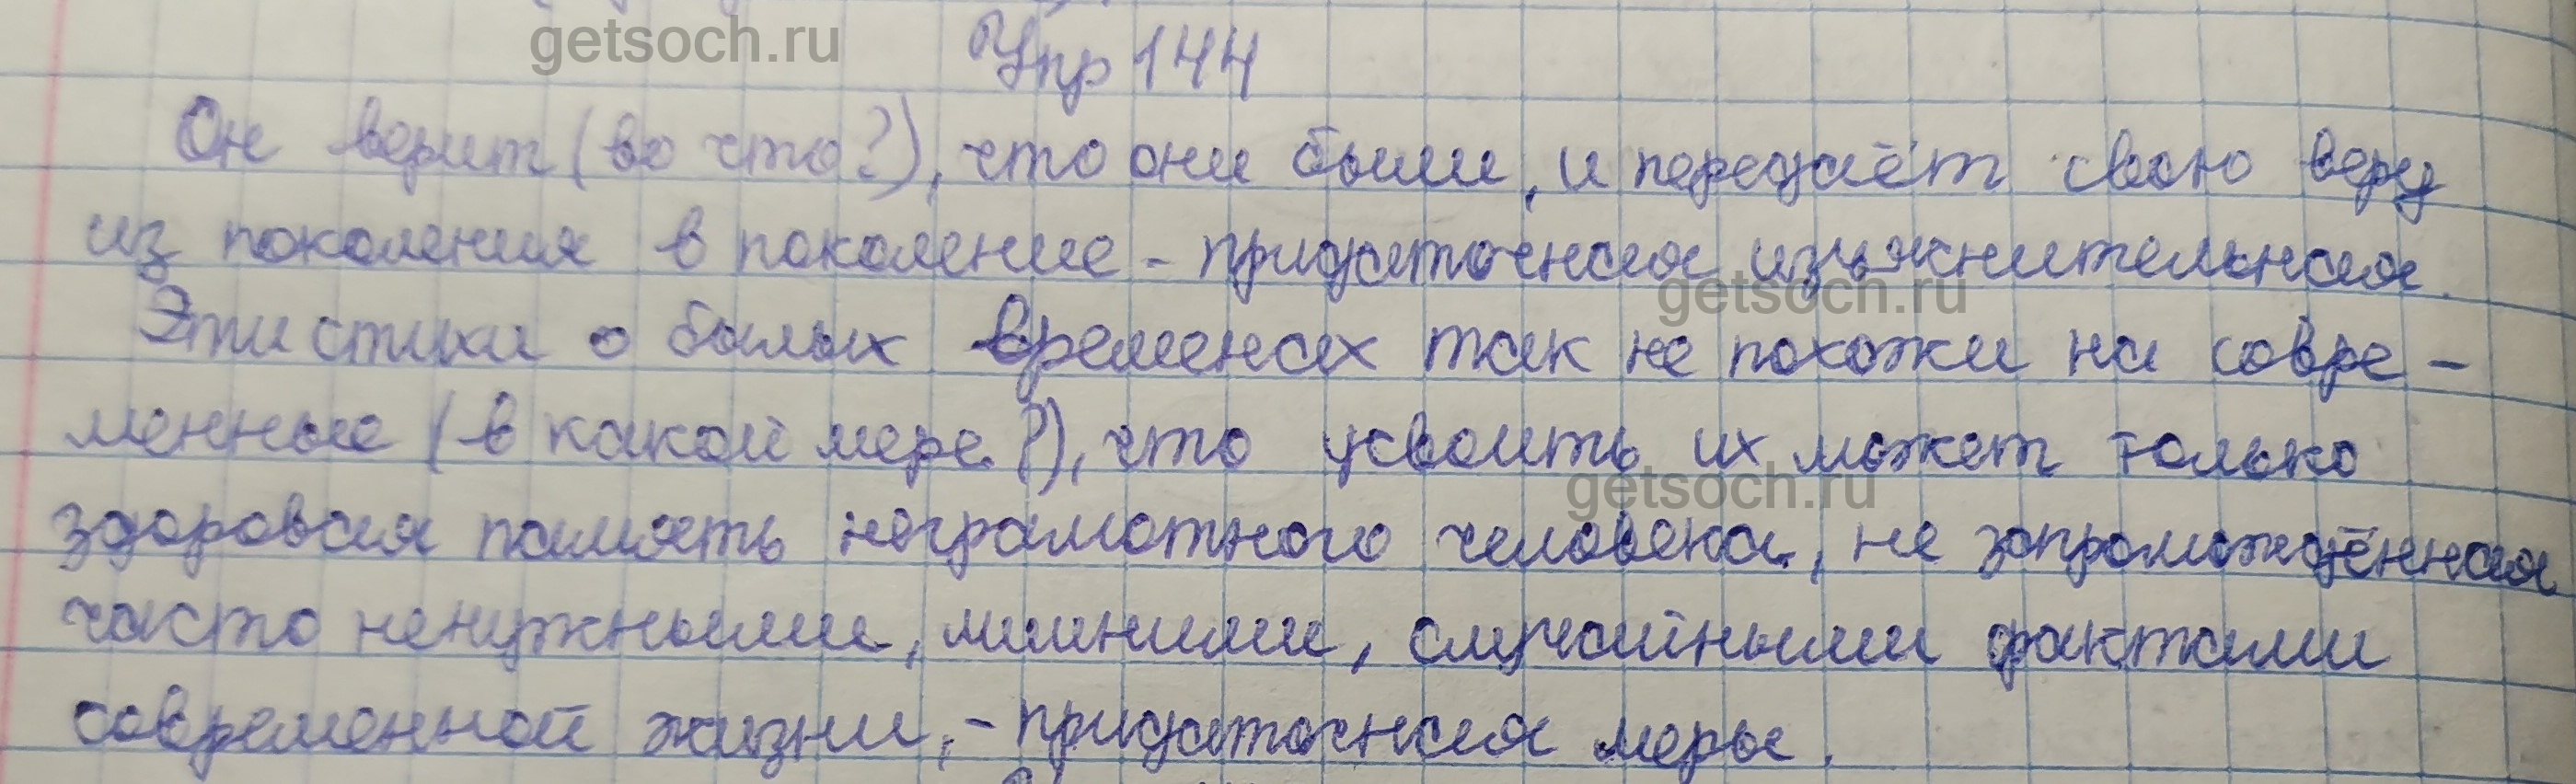 getsoch.ru
Упр 144
Он верит (во что?), что они были, и передаёт свою веру
из поколения в поколение - придаточная изъяснительная.
getsoch.ru
Эти стихи о былых временах так не похожи на совре-
менные (в какой мере?), что усвоить их может только
getsoch.ru
здоровая память неграмотного человека, не загромождённая
часто ненужными, лишними, случайными фактами
современной жизни, - придаточная меры.